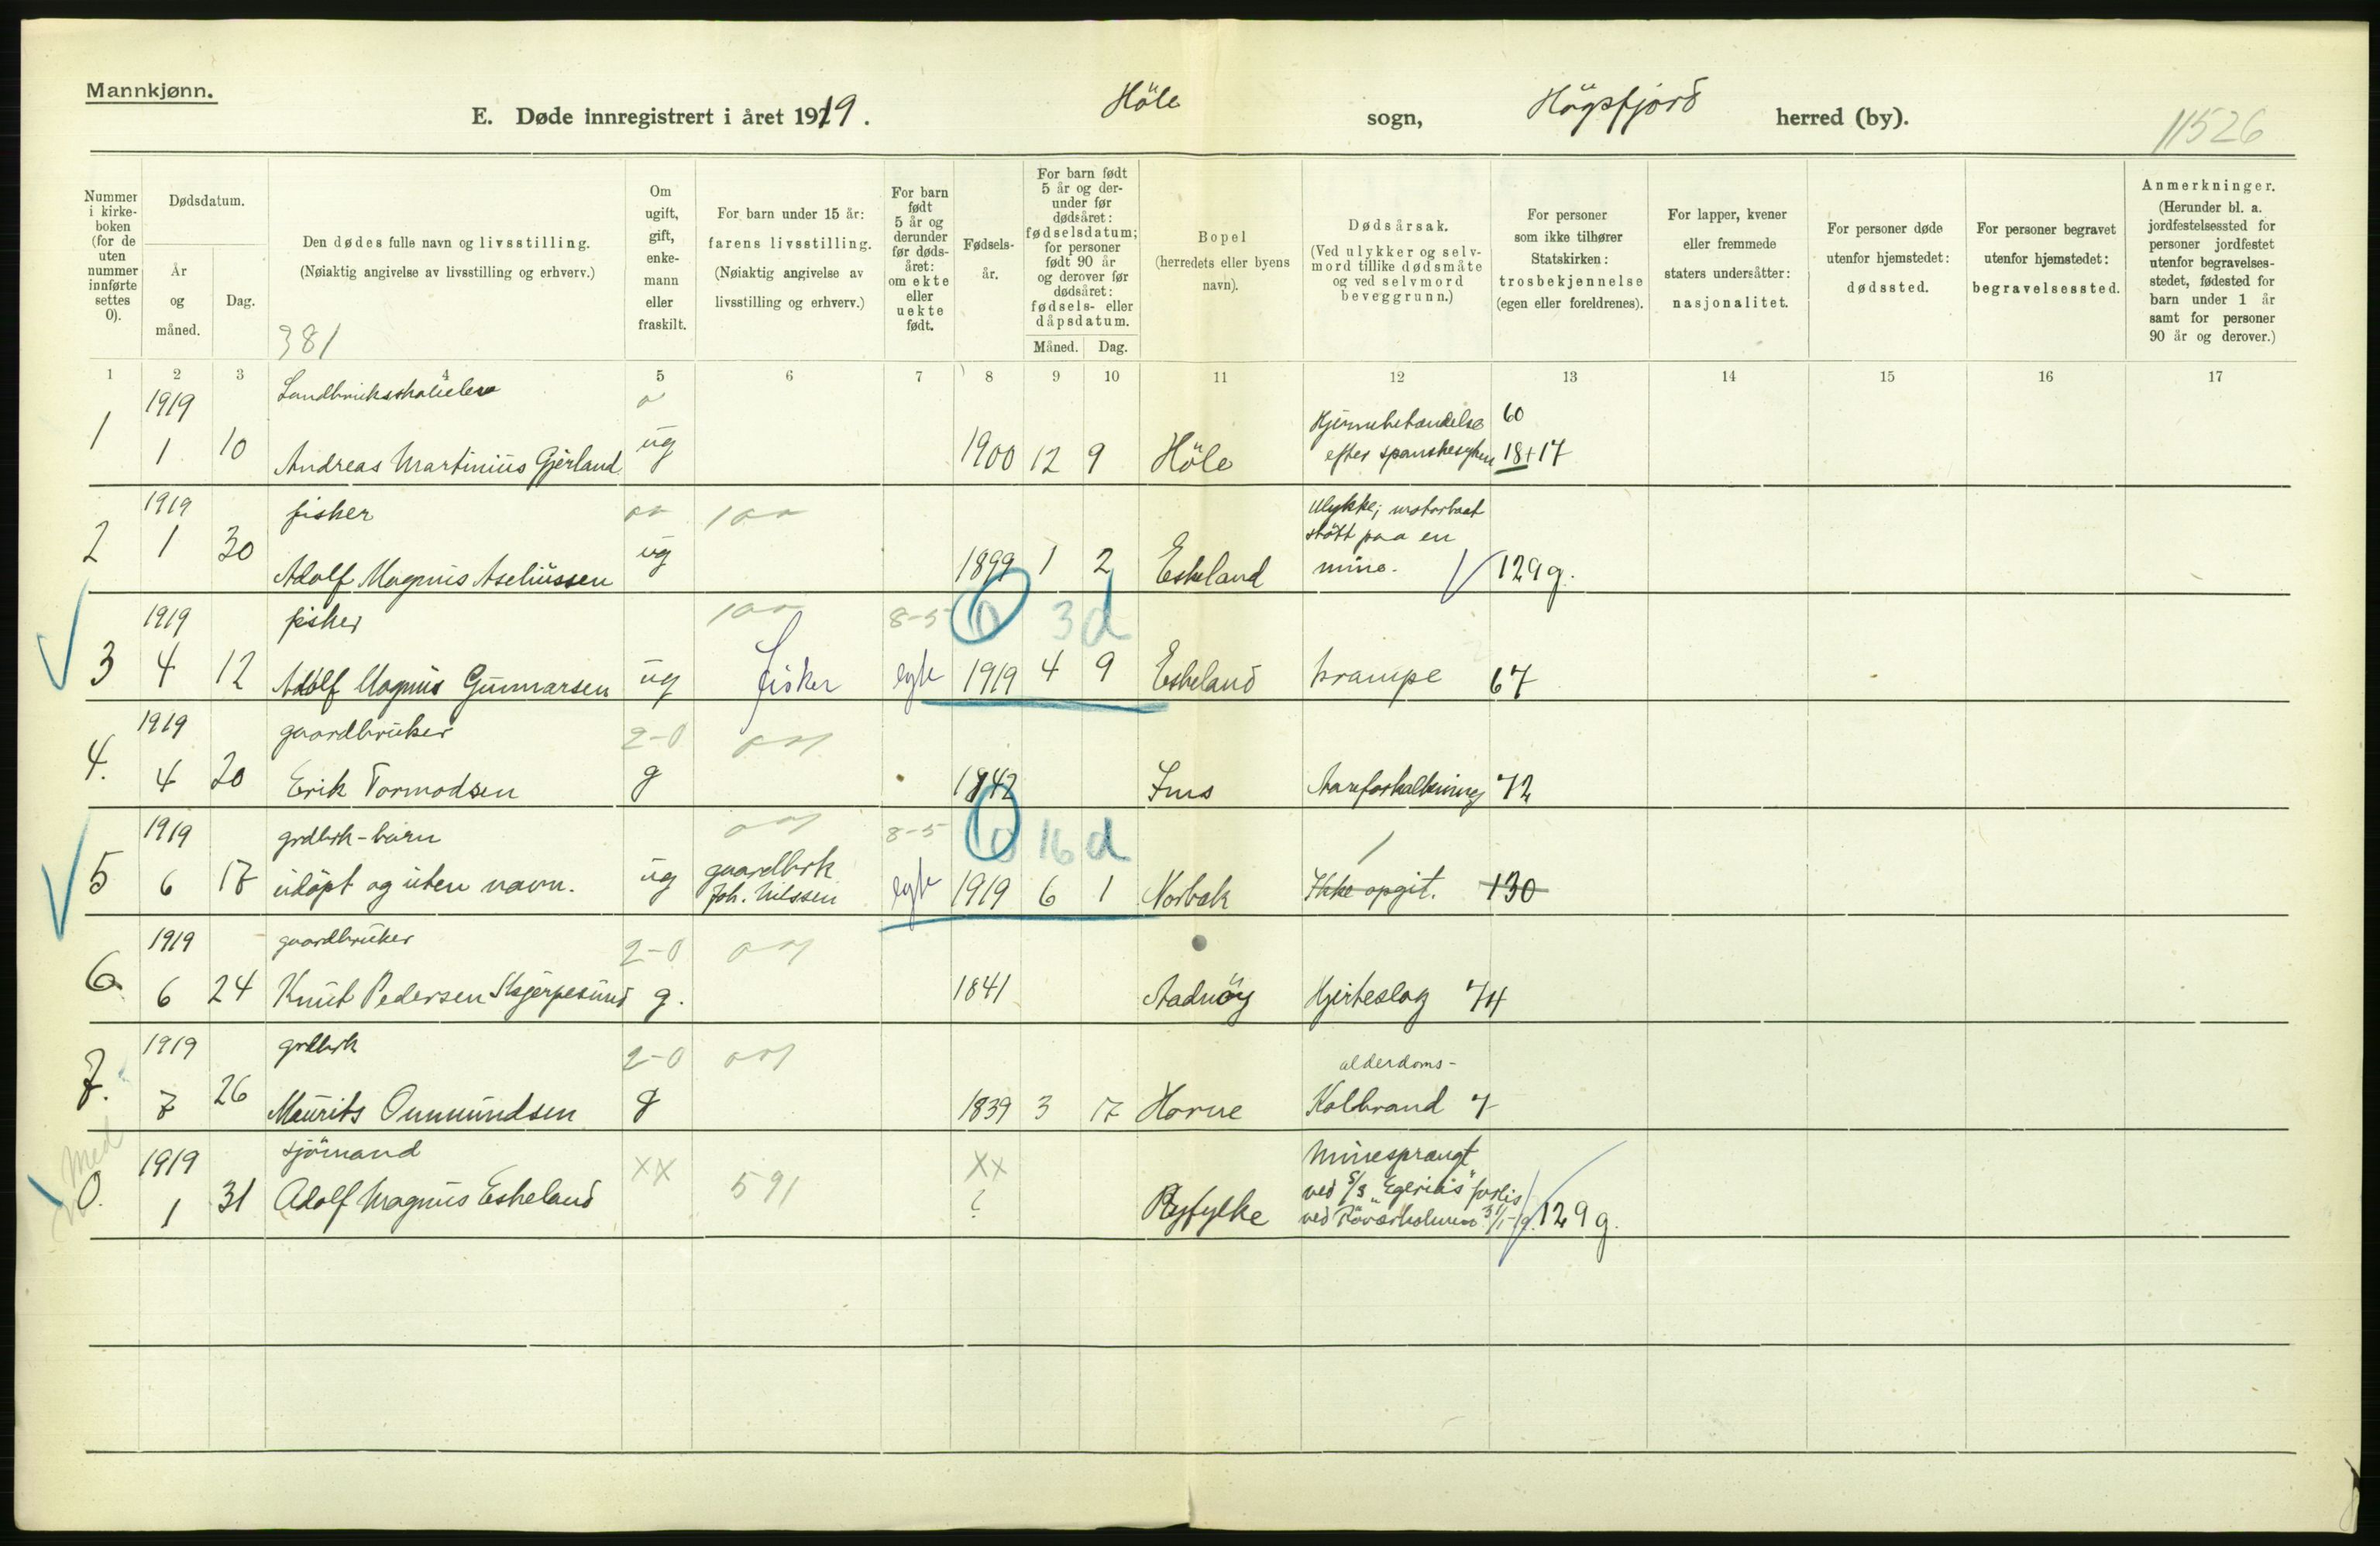 Mannkjønn.
E. Døde innregistrert i året 1919. Höle sogn, Högsfjord herred (by). 11526
Nummer i kirke- boken (for de uten nummer innførte settes 0).
Dødsdatum.
År og måned.
Dag.
Den dødes fulle navn og livsstilling.
(Nøiaktig angivelse av livsstilling og erhverv.)
381
Om ugift, gift, enke- mann eller fraskilt.
For barn under 15 år: farens livsstilling. (Nøiaktig angivelse av livsstilling og erhverv.)
For barn født 5 år og derunder før døds- året: om ekte eller uekte født.
Fødsels- år.
For barn født 5 år og der- under før dødsåret: fødselsdatum; for personer født 90 år og derover før dødsåret: fødsels- eller dåpsdatum.
Måned. Dag.
Bopel (herredets eller byens navn).
Dødsårsak. (Ved ulykker og selv- mord tillike dødsmåte og ved selvmord beveggrunn.)
For personer som ikke tilhører Statskirken: trosbekjennelse (egen eller foreldrenes).
For lapper, kvener eller fremmede staters undersåtter: nasjonalitet.
For personer døde utenfor hjemstedet: dødssted.
For personer begravet utenfor hjemstedet: begravelsessted.
Anmerkninger. (Herunder bl. a. jordfestelsessted for personer jordfestet utenfor begravelses- stedet, fødested for barn under 1 år samt for personer 90 år og derover.)
1 2 3 4 5 6 7 8 9 10 11 12 13 14 15 16 17
1919 Hjernebetændelse 60
1 1 10 Andreas Martinius Gjerland ug 1900 12 9 Höle efter spanskesyken 18+17
1919 fisker Ulykke; motorbaat
stött paa en
2 1 30 Adolf Magnus Aseliussen ug 1899 1 2 Eskeland mine. 129g.
1919 fisker 8-5 0 3 d
3 4 12 Adolf Magnus Gunnarsen ug fisker egte 1919 4 9 Eskeland krampe 67
1919 gaardbruker 2-0
4. 4 20 Erik Tormodsen g 1842 Ims Aareforkalkning 72
1919 grdbrk-barn 8-5 0 16 d
5 6 17 udöpt og uten navn. ug gaardbrk Joh. Nilssen egte 1919 6 1 Norbak Ikke opgit. 130
1919 gaardbruker 2-0
6. 6 24 Knut Pedersen Skjerpesund g. 1841 Aadnöy Hjerteslag 74
1919 grdbrk 2-0 alderdoms-
7. 7 26 Maurits Ommundsen g 1839 3 17 Horne Kolbrand 7
Med
1919 sjömand xx 591 xx Minesprængt
ved S/S "Egeriks" forlis
0. 1 31 Adolf Magnus Eskeland ? Ryfylke ved Röværholmen 31/1-19. 129g.